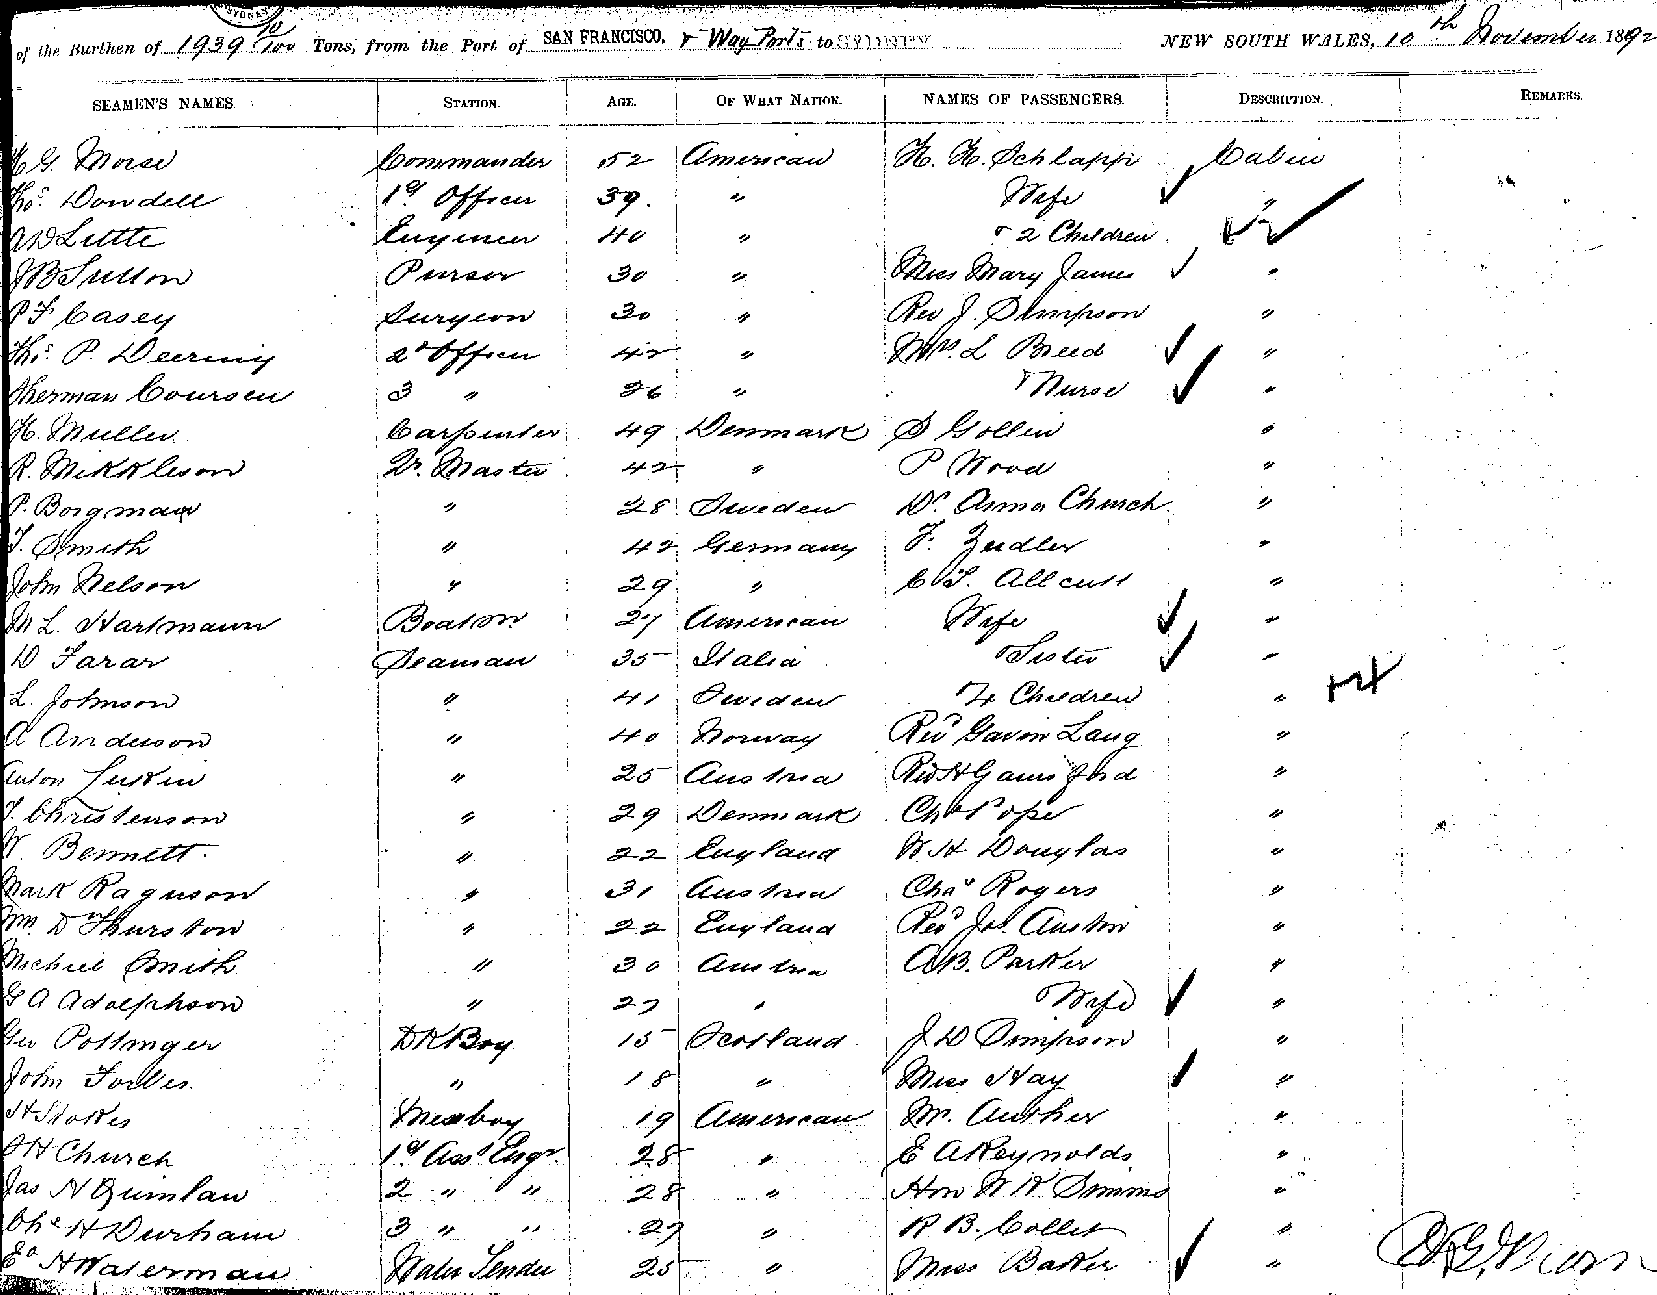 SYDNEY
of the Burthen of 1939 10/100 Tons, from the Port of SAN FRANCISCO, & Way Ports to SYDNEY NEW SOUTH WALES, 10th November 1892
SEAMEN'S NAMES. STATION. AGE. OF WHAT NATION. NAMES OF PASSENGERS. DESCRIPTION. REMARKS.
H G Morse Commander 52 American H. H. Schlapp Cabin
Thos. Dowdell 1st Officer 39. " Wife "
W D Little Engineer 40 " & 2 Children "
J B Sutton Purser 30 " Miss Mary James "
P F Casey Surgeon 30 " Rev J. Simpson "
Thos. P. Deering 2d Officer 42 " Mrs. L Breed "
Sherman Coursen 3 " 26 " & Nurse "
H. Muller Carpenter 49 Denmark S Gollin "
R. Mikkleson Qr. Master 42 " P Wood "
P. Borgman " 28 Sweden Dr. Anna Church "
T. Smith " 42 Germany F. Zeidler "
John Nelson " 29 " C F. Allcutt "
M L. Hartmann Boatsn 27 American Wife "
D Farar Seaman 35 Italia & Sister "
L. Johnson " 41 Sweden & 4 Children " 4
A Anderson " 40 Norway Revd Gavin Lang "
Anton Luskin " 25 Austria Rev H Gainsford "
T. Christenson " 29 Denmark Chas Pope "
W. Bennett. " 22 England W H Douglas "
Mark Raguson " 31 Austria Chas Rogers "
Wm. D Thurston " 22 England Revd Jos. Austin "
Michiel Smith " 30 Austria A B. Parker "
G A Adolephson " 27 " & Wife "
Geo Pottinger DK Boy 15 Scotland J D Simpson "
John Forbes. " 18 " Miss Hay "
H Stokes Messboy 19 American Mr. Auther "
J H Church 1st Asst Engr. 28 " E A Reynolds "
Jas N Quinlan 2 " " 28 " Hon W K Simms "
Chs H Durham 3 " " 27 " R B. Collet "
Ed H Waterman Water Tender 25 " Miss Baker "
H G Morse